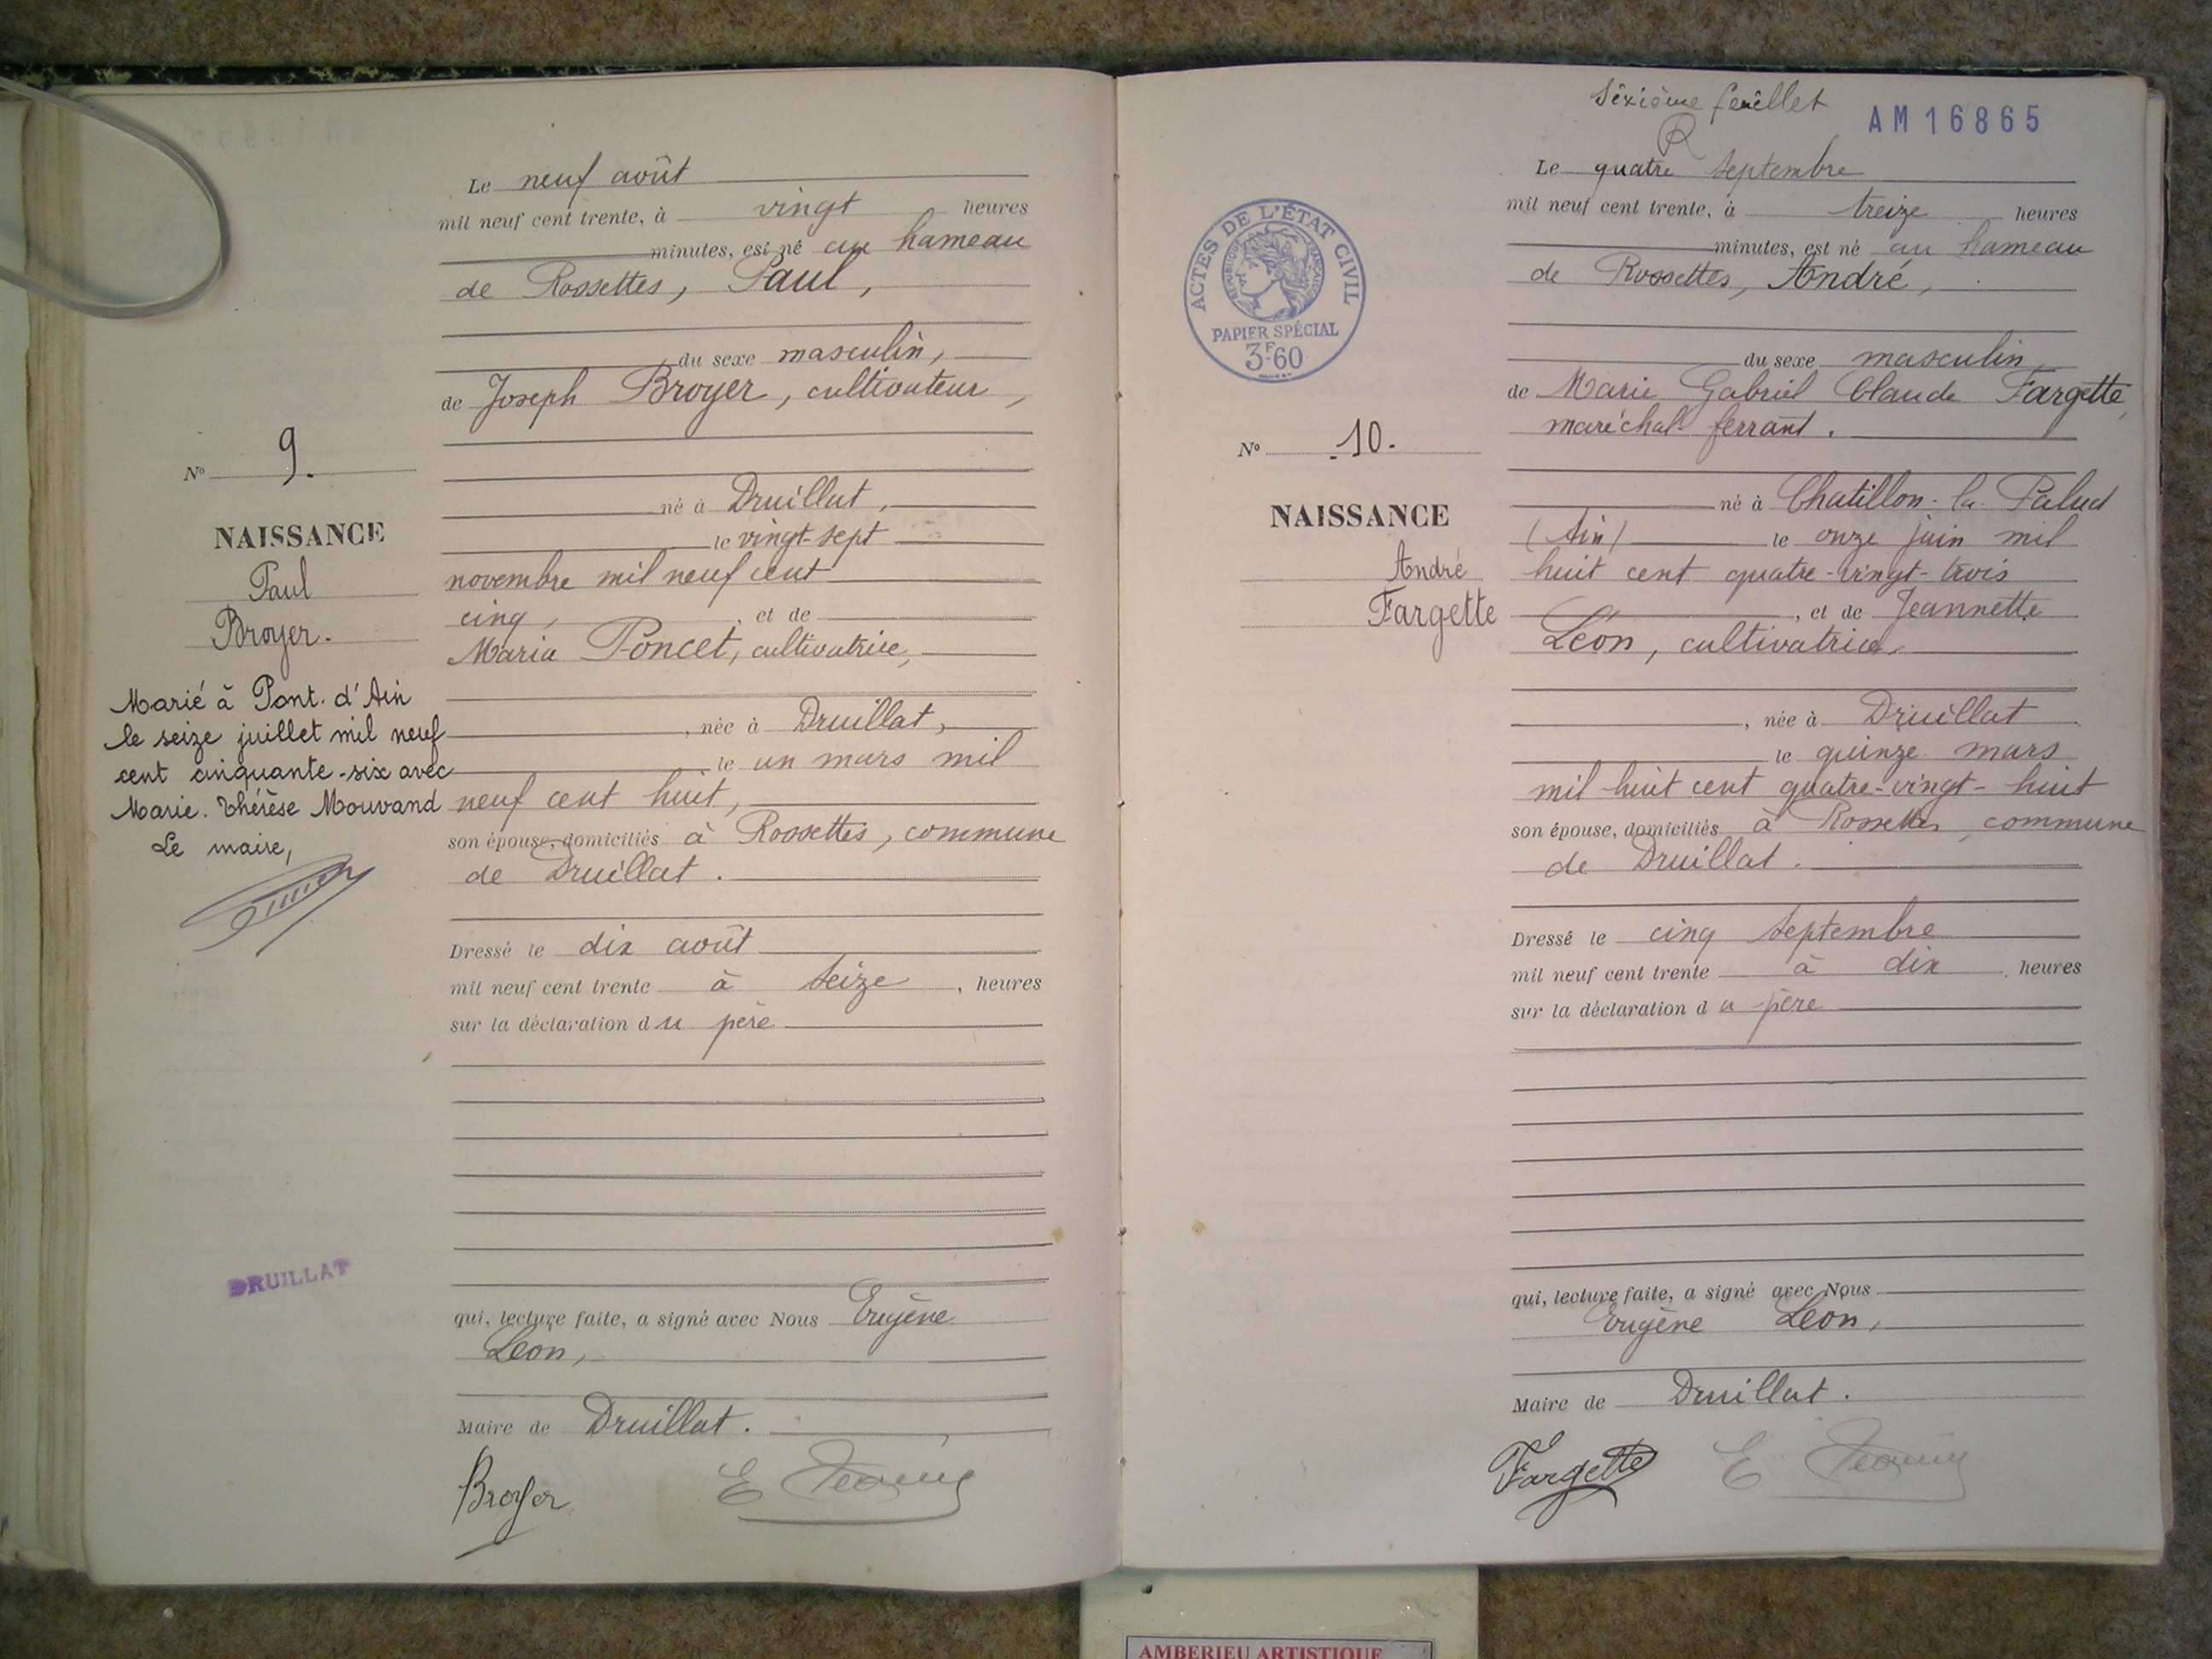 Le neuf août
mil neuf cent trente, à vingt heures
minutes, est né au hameau
de Rossettes, Paul,
du sexe masculin,
de Joseph Broyer, cultivateur,
né à Druillat,
le vingt-sept
novembre mil neuf cent
cinq, et de
Maria Poncet, cultivatrice,
, née à Druillat,
le un mars mil
neuf cent huit,
son épouse, domiciliés à Rossettes, commune
de Druillat.
Dressé le dix août
mil neuf cent trente à seize, heures
sur la déclaration du père
qui, lecture faite, a signé avec Nous Eugène
Léon,
Maire de Druillat.
Broyer
No 9.
NAISSANCE
Paul
Broyer.
Marié à Pont-d'Ain
le seize juillet mil neuf
cent cinquante-six avec
Marie-Thérèse Mouvand
Le maire,
DRUILLAT
Sixième feuillet
AM16865
Le quatre septembre
mil neuf cent trente, à treize heures
minutes, est né au hameau
de Rossettes, André,
du sexe masculin
de Marie Gabriel Claude Fargette,
maréchal-ferrant.
né à Chatillon-la-Palud
(Ain) le onze juin mil
huit cent quatre-vingt-trois
, et de Jeannette
Léon, cultivatrice,
, née à Druillat
le quinze mars
mil huit cent quatre-vingt-huit
son épouse, domiciliés à Rossettes, commune
de Druillat.
Dressé le cinq septembre
mil neuf cent trente à dix heures
sur la déclaration du père
qui, lecture faite, a signé avec Nous
Eugène Léon,
Maire de Druillat.
Fargette
ACTES DE L'ÉTAT CIVIL
REPUBLIQUE FRANÇAISE
PAPIER SPÉCIAL
3F60
No 10.
NAISSANCE
André
Fargette
AMBERIEU ARTISTIQUE